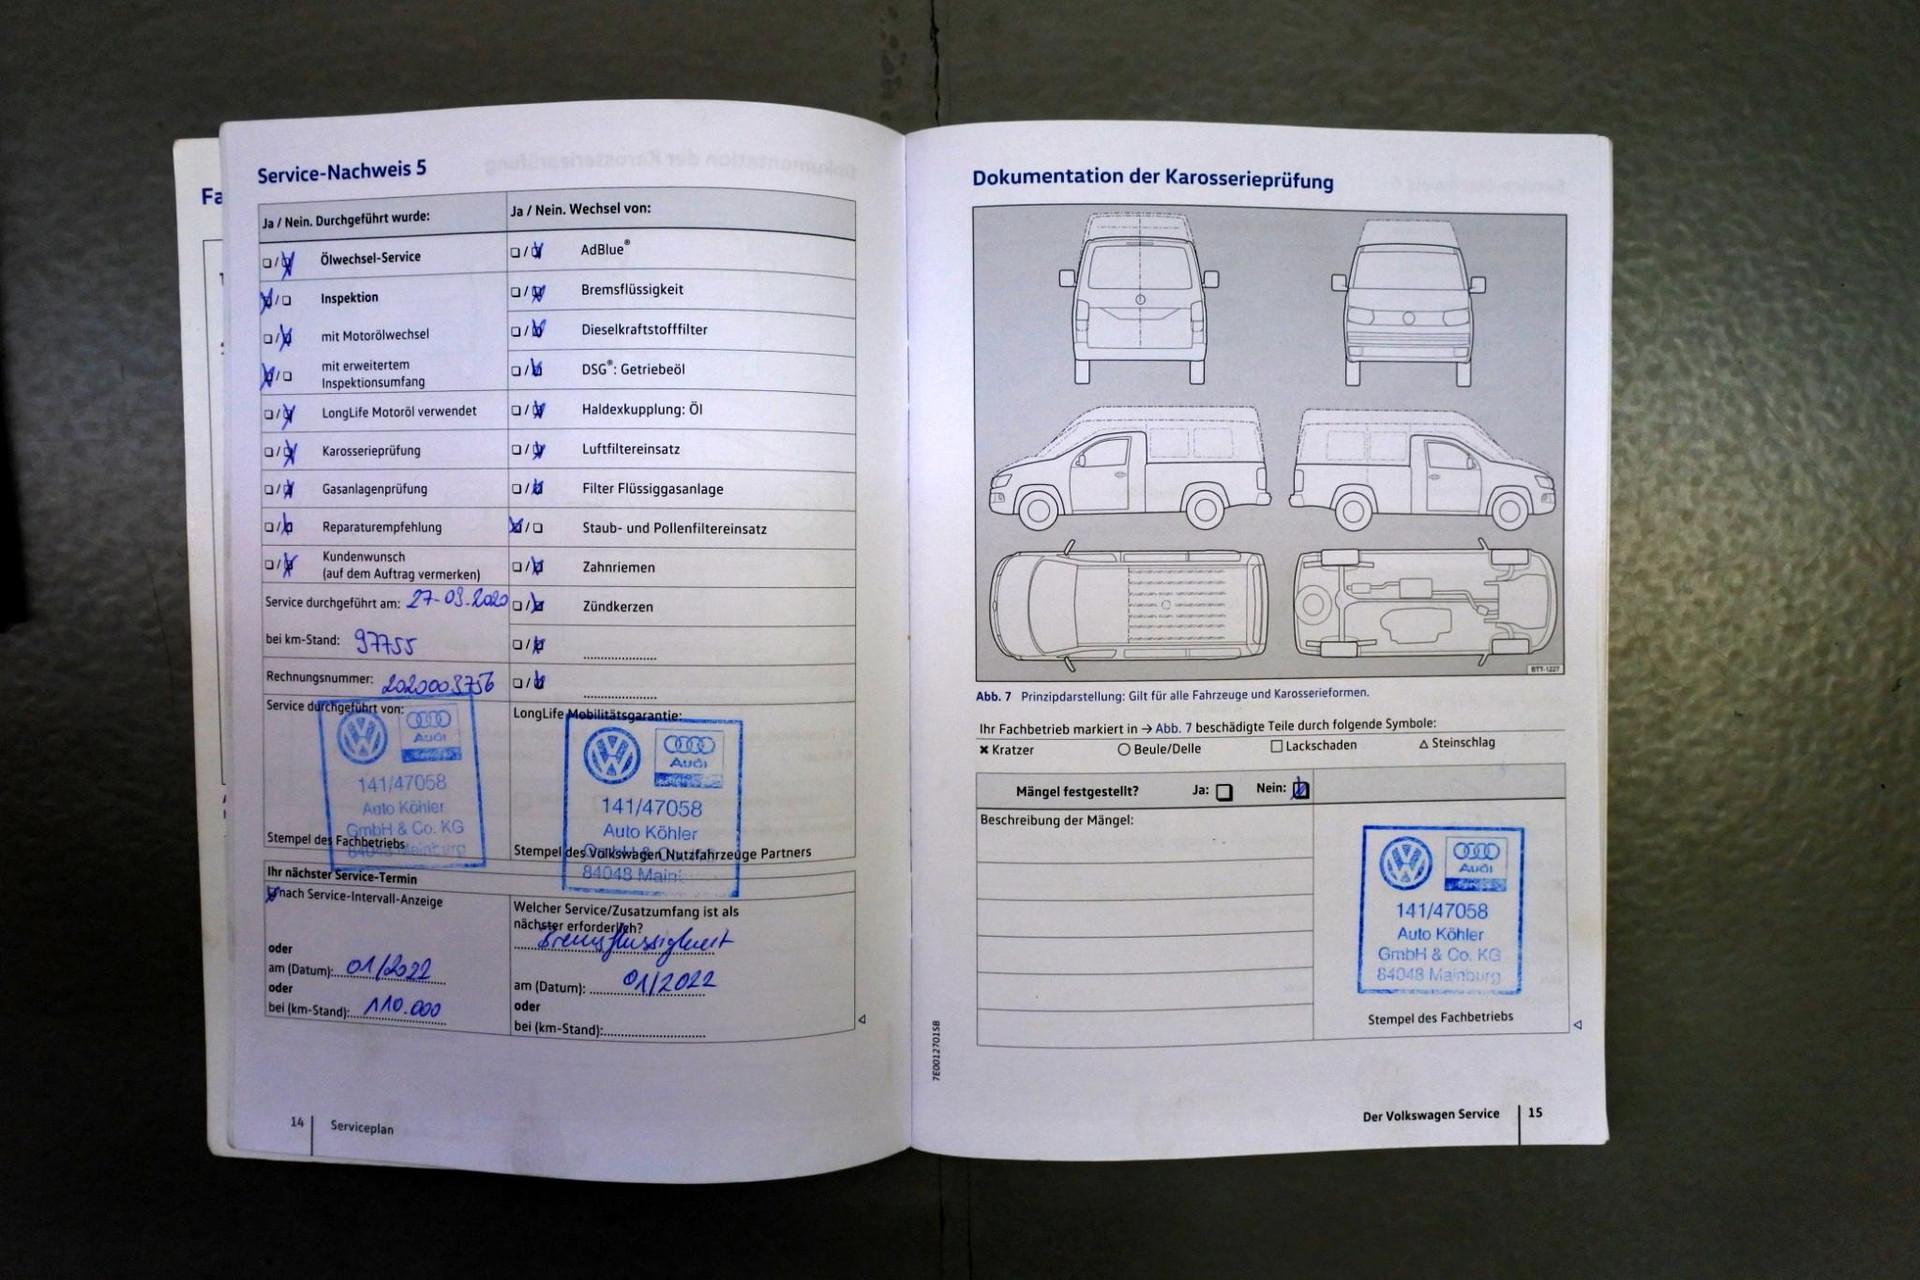 Fa
Service-Nachweis 5
Ja / Nein. Durchgeführt wurde:
Ja / Nein. Wechsel von:
Ölwechsel-Service
AdBlue®
Inspektion
Bremsflüssigkeit
mit Motorölwechsel
Dieselkraftstofffilter
mit erweitertem
Inspektionsumfang
DSG®: Getriebeöl
LongLife Motoröl verwendet
Haldexkupplung: Öl
Karosserieprüfung
Luftfiltereinsatz
Gasanlagenprüfung
Filter Flüssiggasanlage
Reparaturempfehlung
Staub- und Pollenfiltereinsatz
Kundenwunsch
(auf dem Auftrag vermerken)
Zahnriemen
Service durchgeführt am: 27-03.2020
Zündkerzen
bei km-Stand: 97755
Rechnungsnummer: 2020003756
Service durchgeführt von:
Audi
141/47058
Auto Köhler
GmbH & Co. KG
84048 Mainburg
Stempel des Fachbetriebs
LongLife Mobilitätsgarantie:
Audi
141/47058
Auto Köhler
84048 Main
Stempel des Volkswagen Nutzfahrzeuge Partners
Ihr nächster Service-Termin
nach Service-Intervall-Anzeige
oder
am (Datum): 01/2022
oder
bei (km-Stand): 110.000
Welcher Service/Zusatzumfang ist als
nächster erforderlich?
Bremsflüssigkeit
am (Datum): 01/2022
oder
bei (km-Stand):
14
Serviceplan
Dokumentation der Karosserieprüfung
BTT-1227
Abb. 7 Prinzipdarstellung: Gilt für alle Fahrzeuge und Karosserieformen.
Ihr Fachbetrieb markiert in → Abb. 7 beschädigte Teile durch folgende Symbole:
✖ Kratzer ○ Beule/Delle □ Lackschaden △ Steinschlag
Mängel festgestellt? Ja: Nein:
Beschreibung der Mängel:
Audi
141/47058
Auto Köhler
GmbH & Co. KG
84048 Mainburg
Stempel des Fachbetriebs
7E0012701SB
Der Volkswagen Service
15